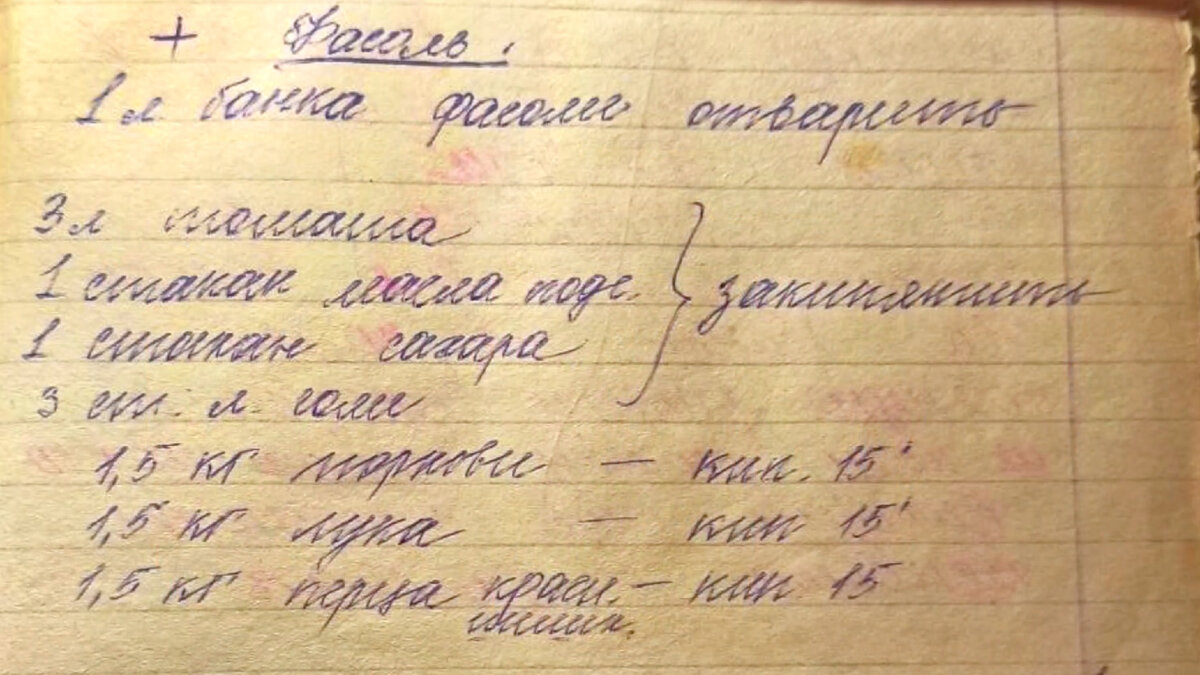 + Фасоль.
1 л банка фасоли отварить
3 л томата
1 стакан масла подс.
1 стакан сахара
3 ст. л. соли
} закипятить
1,5 кг моркови – кип. 15'
1,5 кг лука – кип 15'
1,5 кг перца красн. – кип. 15